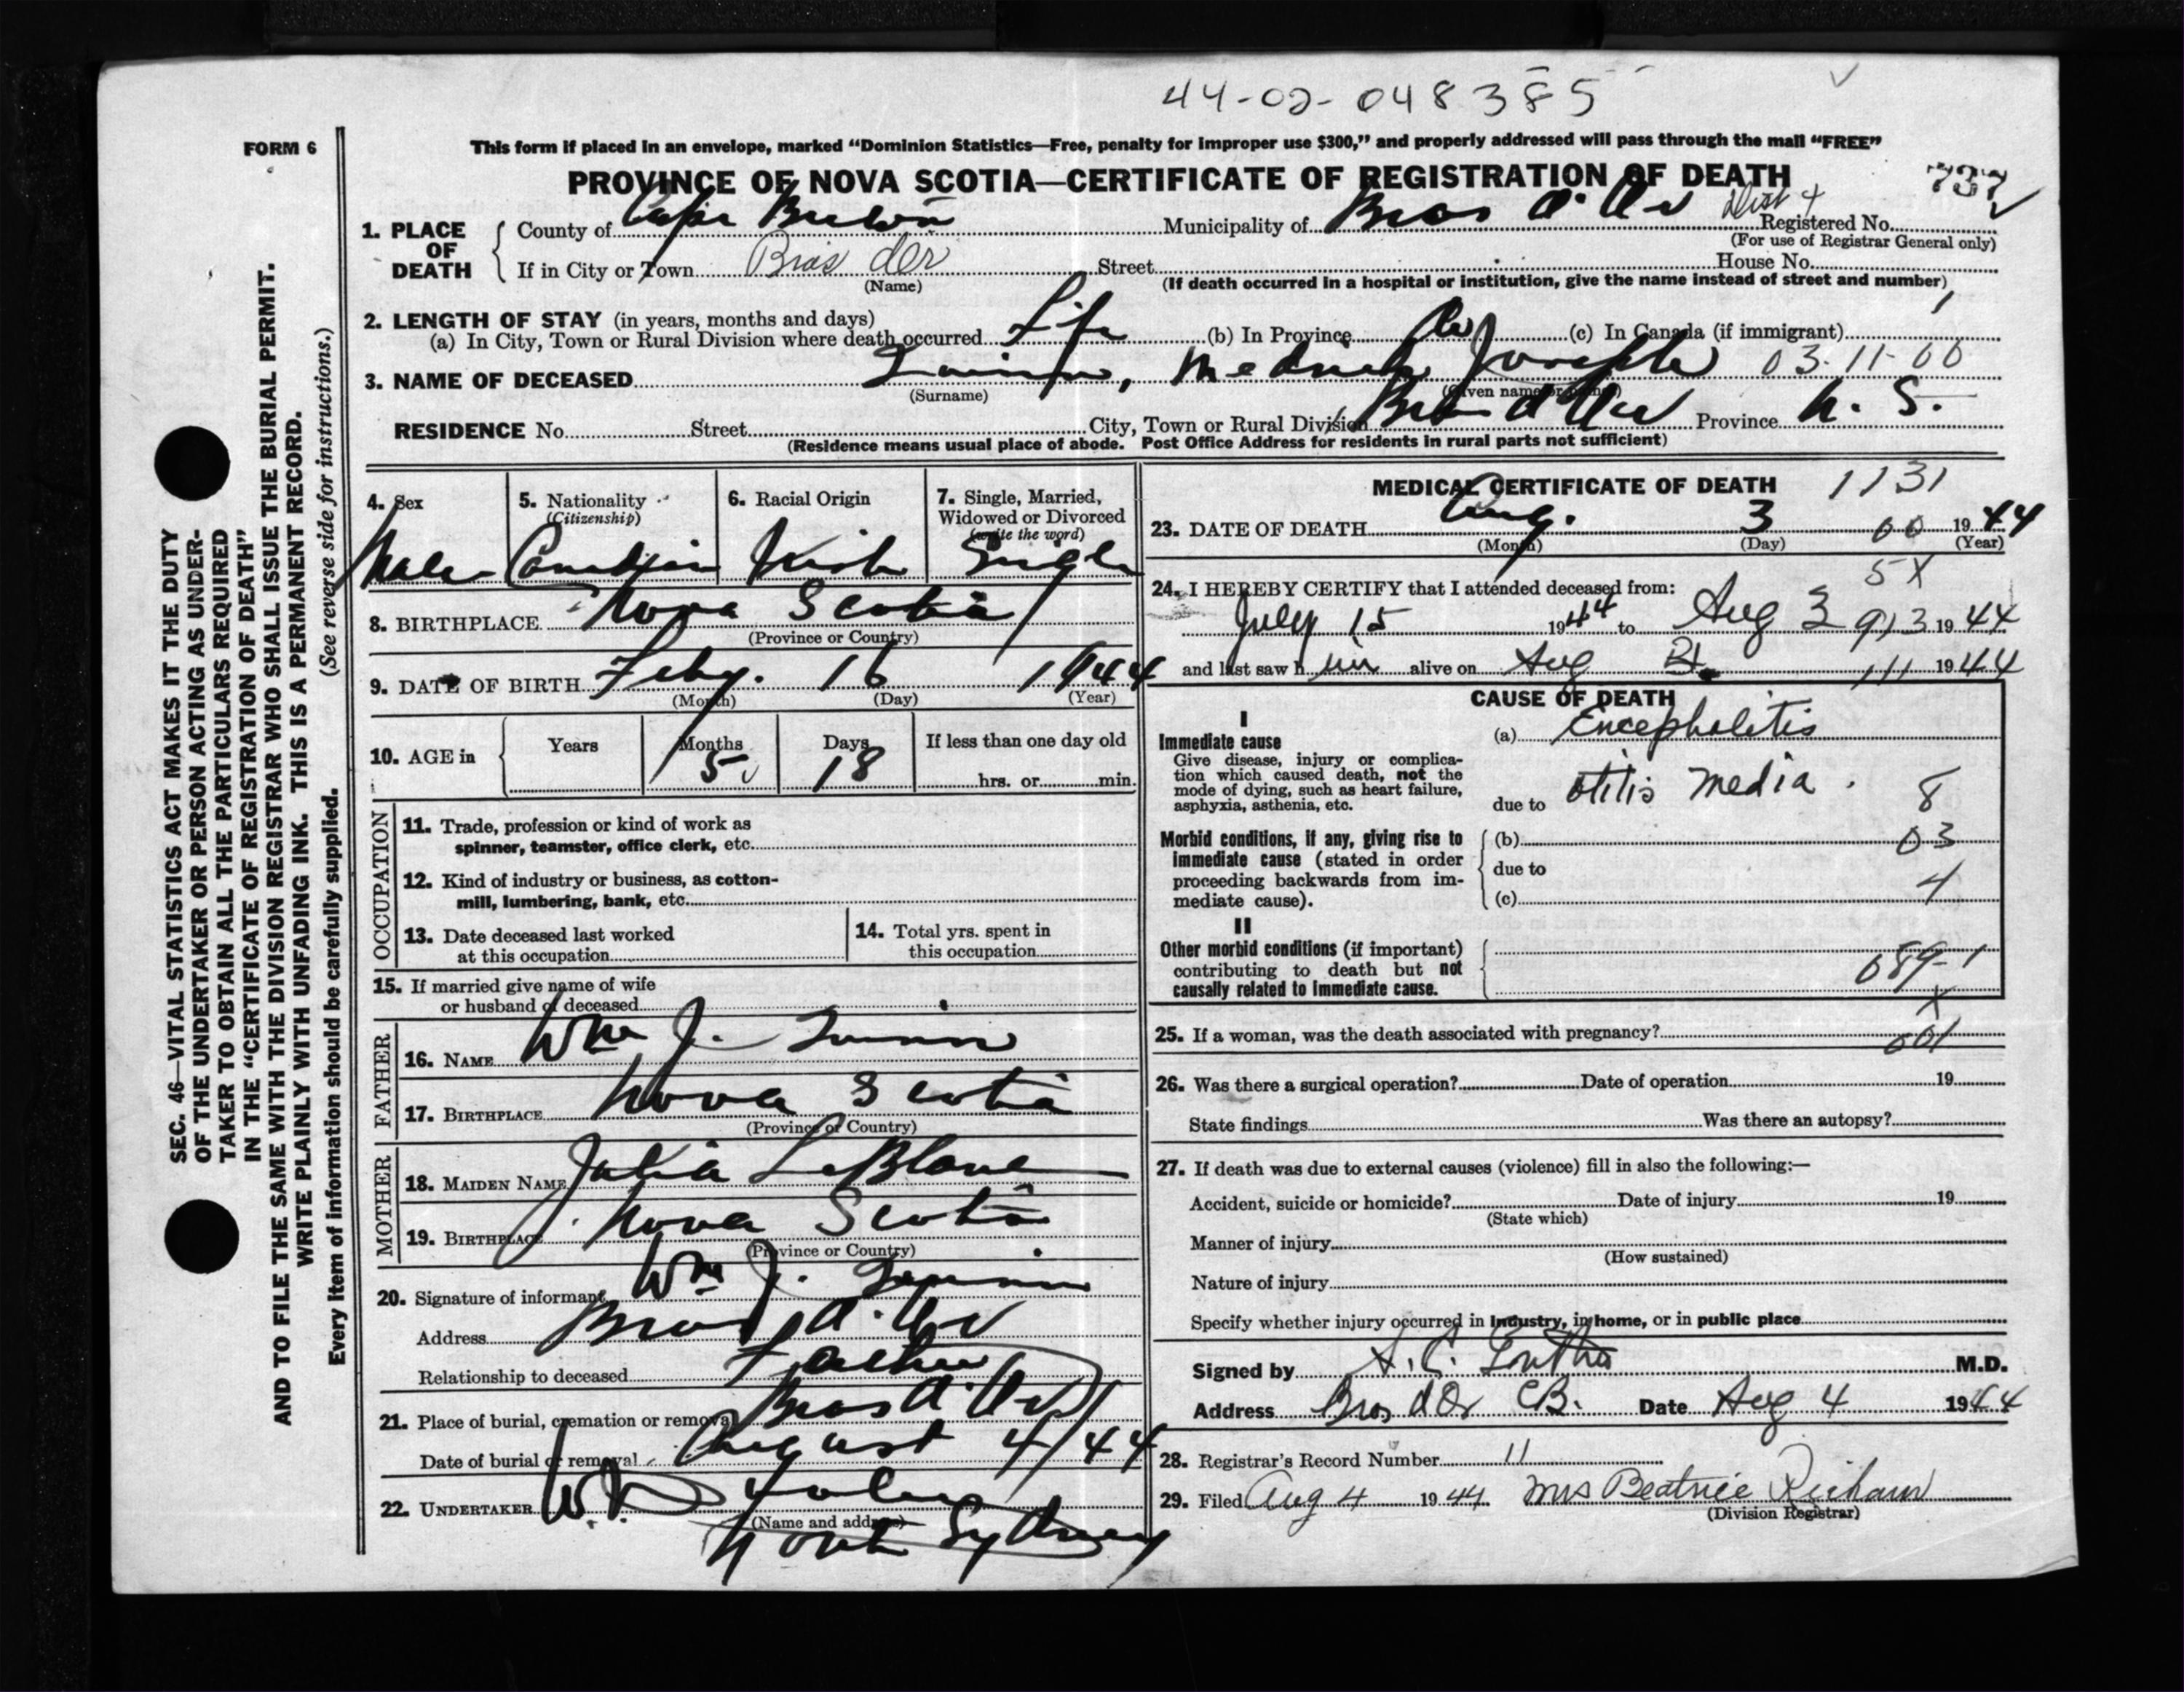 44-02-048385
FORM 6
This form if placed in an envelope, marked “Dominion Statistics—Free, penalty for improper use $300,” and properly addressed will pass through the mail “FREE”
PROVINCE OF NOVA SCOTIA—CERTIFICATE OF REGISTRATION OF DEATH
737
1. PLACE OF DEATH
County of Cape Breton Municipality of Bras d'Or Dist 4 Registered No.
(For use of Registrar General only)
If in City or Town Bras dOr Street House No.
(Name) (If death occurred in a hospital or institution, give the name instead of street and number)
2. LENGTH OF STAY (in years, months and days)
(a) In City, Town or Rural Division where death occurred Life (b) In Province (c) In Canada (if immigrant)
3. NAME OF DECEASED , Joseph 03-11-00
(Surname) (Given name or names)
RESIDENCE No. Street City, Town or Rural Division Bras d'Or Province N. S.
(Residence means usual place of abode. Post Office Address for residents in rural parts not sufficient)
4. Sex
Male
5. Nationality
(Citizenship)
Canadian
6. Racial Origin
Irish
7. Single, Married, Widowed or Divorced
(write the word)
Single
8. BIRTHPLACE Nova Scotia
(Province or Country)
9. DATE OF BIRTH Feby. 16 1944
(Month) (Day) (Year)
10. AGE in Years Months Days If less than one day old
5 18 hrs. or min.
OCCUPATION
11. Trade, profession or kind of work as
spinner, teamster, office clerk, etc.
12. Kind of industry or business, as cotton-
mill, lumbering, bank, etc.
13. Date deceased last worked
at this occupation
14. Total yrs. spent in
this occupation
15. If married give name of wife
or husband of deceased
FATHER
16. NAME Wm J.
17. BIRTHPLACE Nova Scotia
(Province or Country)
MOTHER
18. MAIDEN NAME Julia LeBlanc
19. BIRTHPLACE Nova Scotia
(Province or Country)
20. Signature of informant Wm J.
Address Bras d'Or
Relationship to deceased Father
21. Place of burial, cremation or removal Bras d'Or
Date of burial or removal August 4/44
22. UNDERTAKER W.
(Name and address)
North Sydney
MEDICAL CERTIFICATE OF DEATH 1131
23. DATE OF DEATH Aug. 3 00 1944
(Month) (Day) (Year)
5X
24. I HEREBY CERTIFY that I attended deceased from:
July 15 1944 to Aug 3 913 1944
and last saw him alive on Aug 111 1944
CAUSE OF DEATH
I
Immediate cause
Give disease, injury or complica-
tion which caused death, not the
mode of dying, such as heart failure,
asphyxia, asthenia, etc.
(a) Encephalitis
due to otitis media. 8
Morbid conditions, if any, giving rise to
immediate cause (stated in order
proceeding backwards from im-
mediate cause).
(b) 03
due to
(c) 4
II
Other morbid conditions (if important)
contributing to death but not
causally related to immediate cause.
089-1
X
25. If a woman, was the death associated with pregnancy? 001
26. Was there a surgical operation? Date of operation 19
State findings Was there an autopsy?
27. If death was due to external causes (violence) fill in also the following:—
Accident, suicide or homicide? Date of injury 19
(State which)
Manner of injury
(How sustained)
Nature of injury
Specify whether injury occurred in Industry, in home, or in public place
Signed by M.D.
Address Bras dOr CB. Date Aug 4 1944
28. Registrar's Record Number 11
29. Filed Aug 4 1944 Mrs Beatrice
(Division Registrar)
SEC. 46—VITAL STATISTICS ACT MAKES IT THE DUTY
OF THE UNDERTAKER OR PERSON ACTING AS UNDER-
TAKER TO OBTAIN ALL THE PARTICULARS REQUIRED
IN THE “CERTIFICATE OF REGISTRATION OF DEATH”
AND TO FILE THE SAME WITH THE DIVISION REGISTRAR WHO SHALL ISSUE THE BURIAL PERMIT.
WRITE PLAINLY WITH UNFADING INK. THIS IS A PERMANENT RECORD.
Every item of information should be carefully supplied. (See reverse side for instructions.)